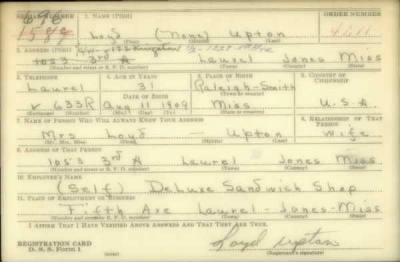 SERIAL NUMBER 1. NAME (Print) ORDER NUMBER
1588 Loyd (None) Upton
2. ADDRESS (Print)
1053 3rd A Laurel Jones Miss
(Number and street or R. F. D. number) (Town) (County) (State)
3. TELEPHONE 4. AGE IN YEARS 5. PLACE OF BIRTH 6. COUNTRY OF CITIZENSHIP
Laurel 31 Raleigh-Smith
DATE OF BIRTH
633R Aug 11 1909 Miss U.S.A.
(Exchange) (Number) (Mo.) (Day) (Yr.) (State or country)
7. NAME OF PERSON WHO WILL ALWAYS KNOW YOUR ADDRESS 8. RELATIONSHIP OF THAT PERSON
Mrs Loyd — Upton wife
(Mr., Mrs., Miss) (First) (Middle) (Last)
9. ADDRESS OF THAT PERSON
1053 3rd A Laurel Jones Miss
(Number and street or R. F. D. number) (Town) (County) (State)
10. EMPLOYER'S NAME
(Self) Deluxe Sandwich Shop
11. PLACE OF EMPLOYMENT OR BUSINESS
Fifth Ave Laurel-Jones-Miss
(Number and street or R. F. D. number) (Town) (County) (State)
I AFFIRM THAT I HAVE VERIFIED ABOVE ANSWERS AND THAT THEY ARE TRUE.
REGISTRATION CARD
D. S. S. Form 1 (over) Loyd Upton
(Registrant's signature)